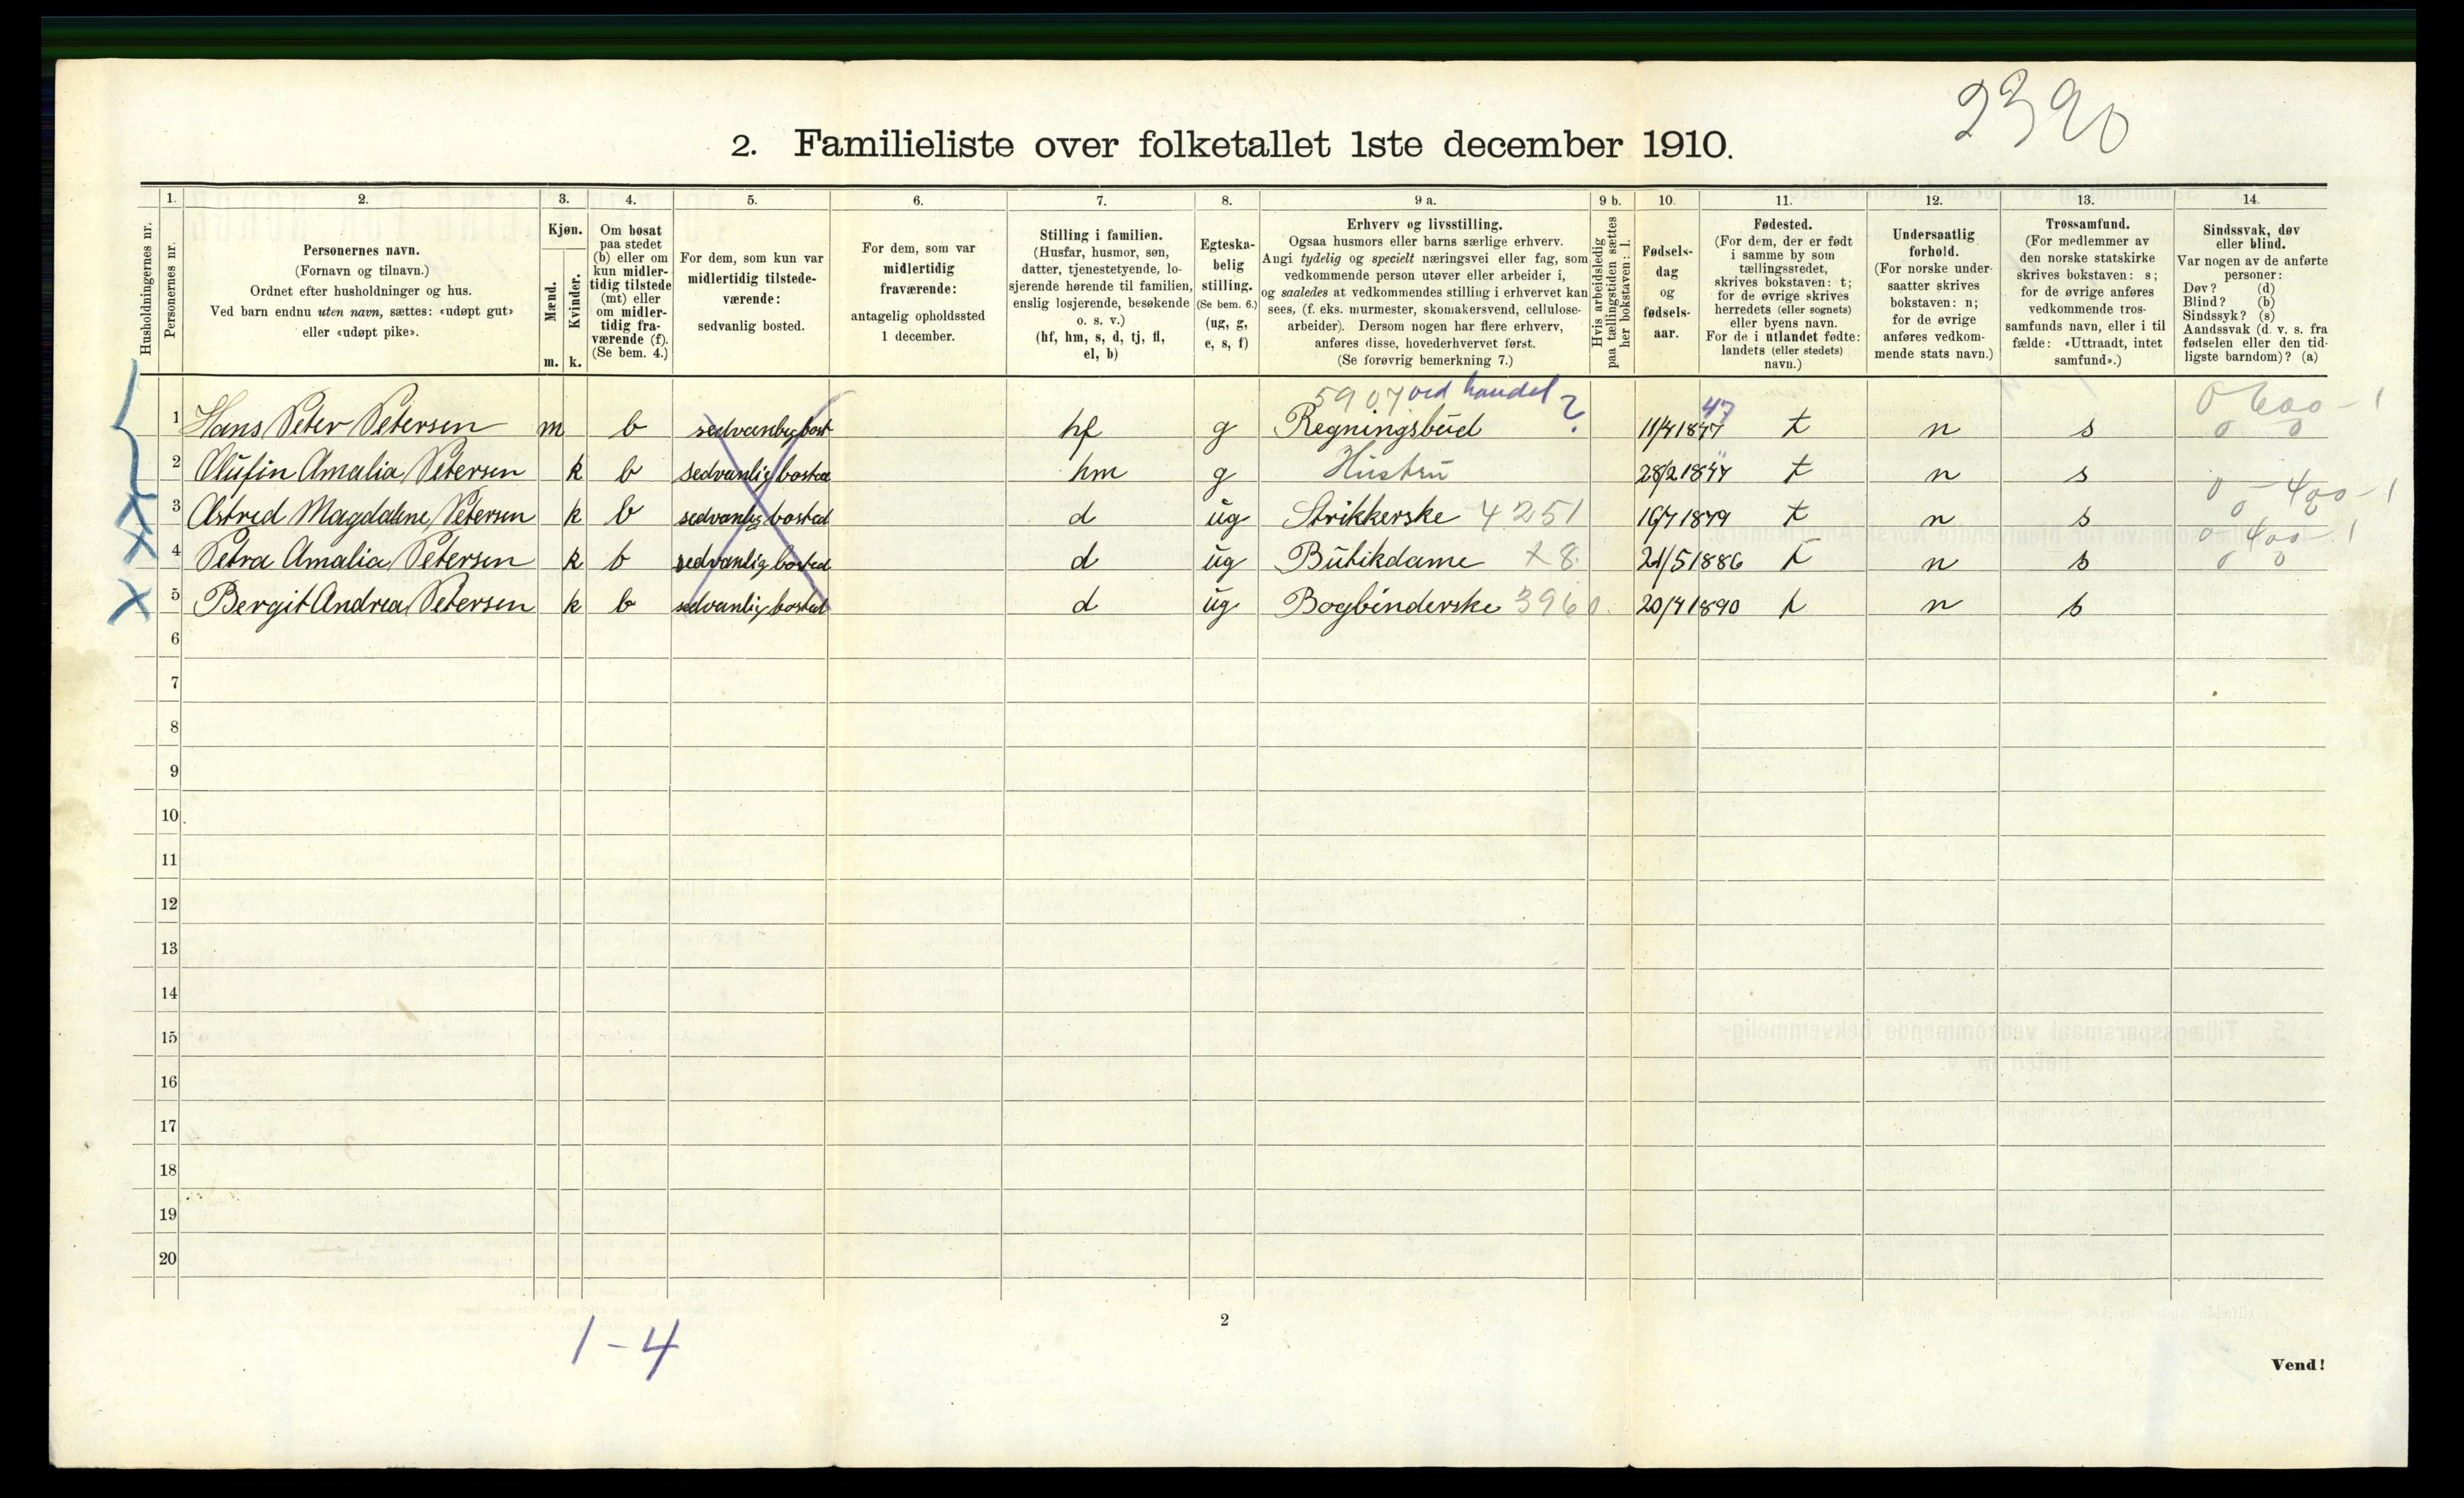 2390
2. Familieliste over folketallet 1ste december 1910.
Husholdningernes nr.
1. Personernes nr.
2. Personernes navn.
(Fornavn og tilnavn.)
Ordnet efter husholdninger og hus.
Ved barn endnu uten navn, sættes: «udøpt gut»
eller «udøpt pike».
3. Kjøn.
Mænd. m.
Kvinder. k.
4. Om bosat
paa stedet
(b) eller om
kun midler-
tidig tilstede
(mt) eller
om midler-
tidig fra-
værende (f).
(Se bem. 4.)
5. For dem, som kun var
midlertidig tilstede-
værende:
sedvanlig bosted.
6. For dem, som var
midlertidig
fraværende:
antagelig opholdssted
1 december.
7. Stilling i familien.
(Husfar, husmor, søn,
datter, tjenestetyende, lo-
sjerende hørende til familien,
enslig losjerende, besøkende
o. s. v.)
(hf, hm, s, d, tj, fl,
el, b)
8. Egteska-
belig
stilling.
(Se bem. 6.)
(ug, g,
e, s, f)
9 a. Erhverv og livsstilling.
Ogsaa husmors eller barns særlige erhverv.
Angi tydelig og specielt næringsvei eller fag, som
vedkommende person utøver eller arbeider i,
og saaledes at vedkommendes stilling i erhvervet kan
sees, (f. eks. murmester, skomakersvend, cellulose-
arbeider). Dersom nogen har flere erhverv,
anføres disse, hovederhvervet først.
(Se forøvrig bemerkning 7.)
9 b. Hvis arbeidsledig
paa tællingstiden sættes
her bokstaven: l.
10. Fødsels-
dag
og
fødsels-
aar.
11. Fødested.
(For dem, der er født
i samme by som
tællingsstedet,
skrives bokstaven: t;
for de øvrige skrives
herredets (eller sognets)
eller byens navn.
For de i utlandet fødte:
landets (eller stedets)
navn.)
12. Undersaatlig
forhold.
(For norske under-
saatter skrives
bokstaven: n;
for de øvrige
anføres vedkom-
mende stats navn.)
13. Trossamfund.
(For medlemmer av
den norske statskirke
skrives bokstaven: s;
for de øvrige anføres
vedkommende tros-
samfunds navn, eller i til
fælde: «Uttraadt, intet
samfund».)
14. Sindssvak, døv
eller blind.
Var nogen av de anførte
personer:
Døv? (d)
Blind? (b)
Sindssyk? (s)
Aandssvak (d. v. s. fra
fødselen eller den tid-
ligste barndom)? (a)
5907 ved handel ?
47
1 Hans Peter Petersen m b sedvanlig bost hf g Regningsbud 11/4 1847 t n s
2 Olufin Amalia Petersen k b sedvanlig bosted hm g Hustru 28/2 1847 t n s
3 Astrid Magdalene Petersen k b sedvanlig bosted d ug Strikkerske 4251 16/7 1879 t n s
4 Petra Amalia Petersen k b sedvanlig bosted d ug Butikdame 21/5 1886 t n s
5 Bergit Andrea Petersen k b sedvanlig bosted d ug Bogbinderske 3960. 20/4 1890 t n s
6
7
8
9
10
11
12
13
14
15
16
17
18
19
20
2
1-4
Vend!